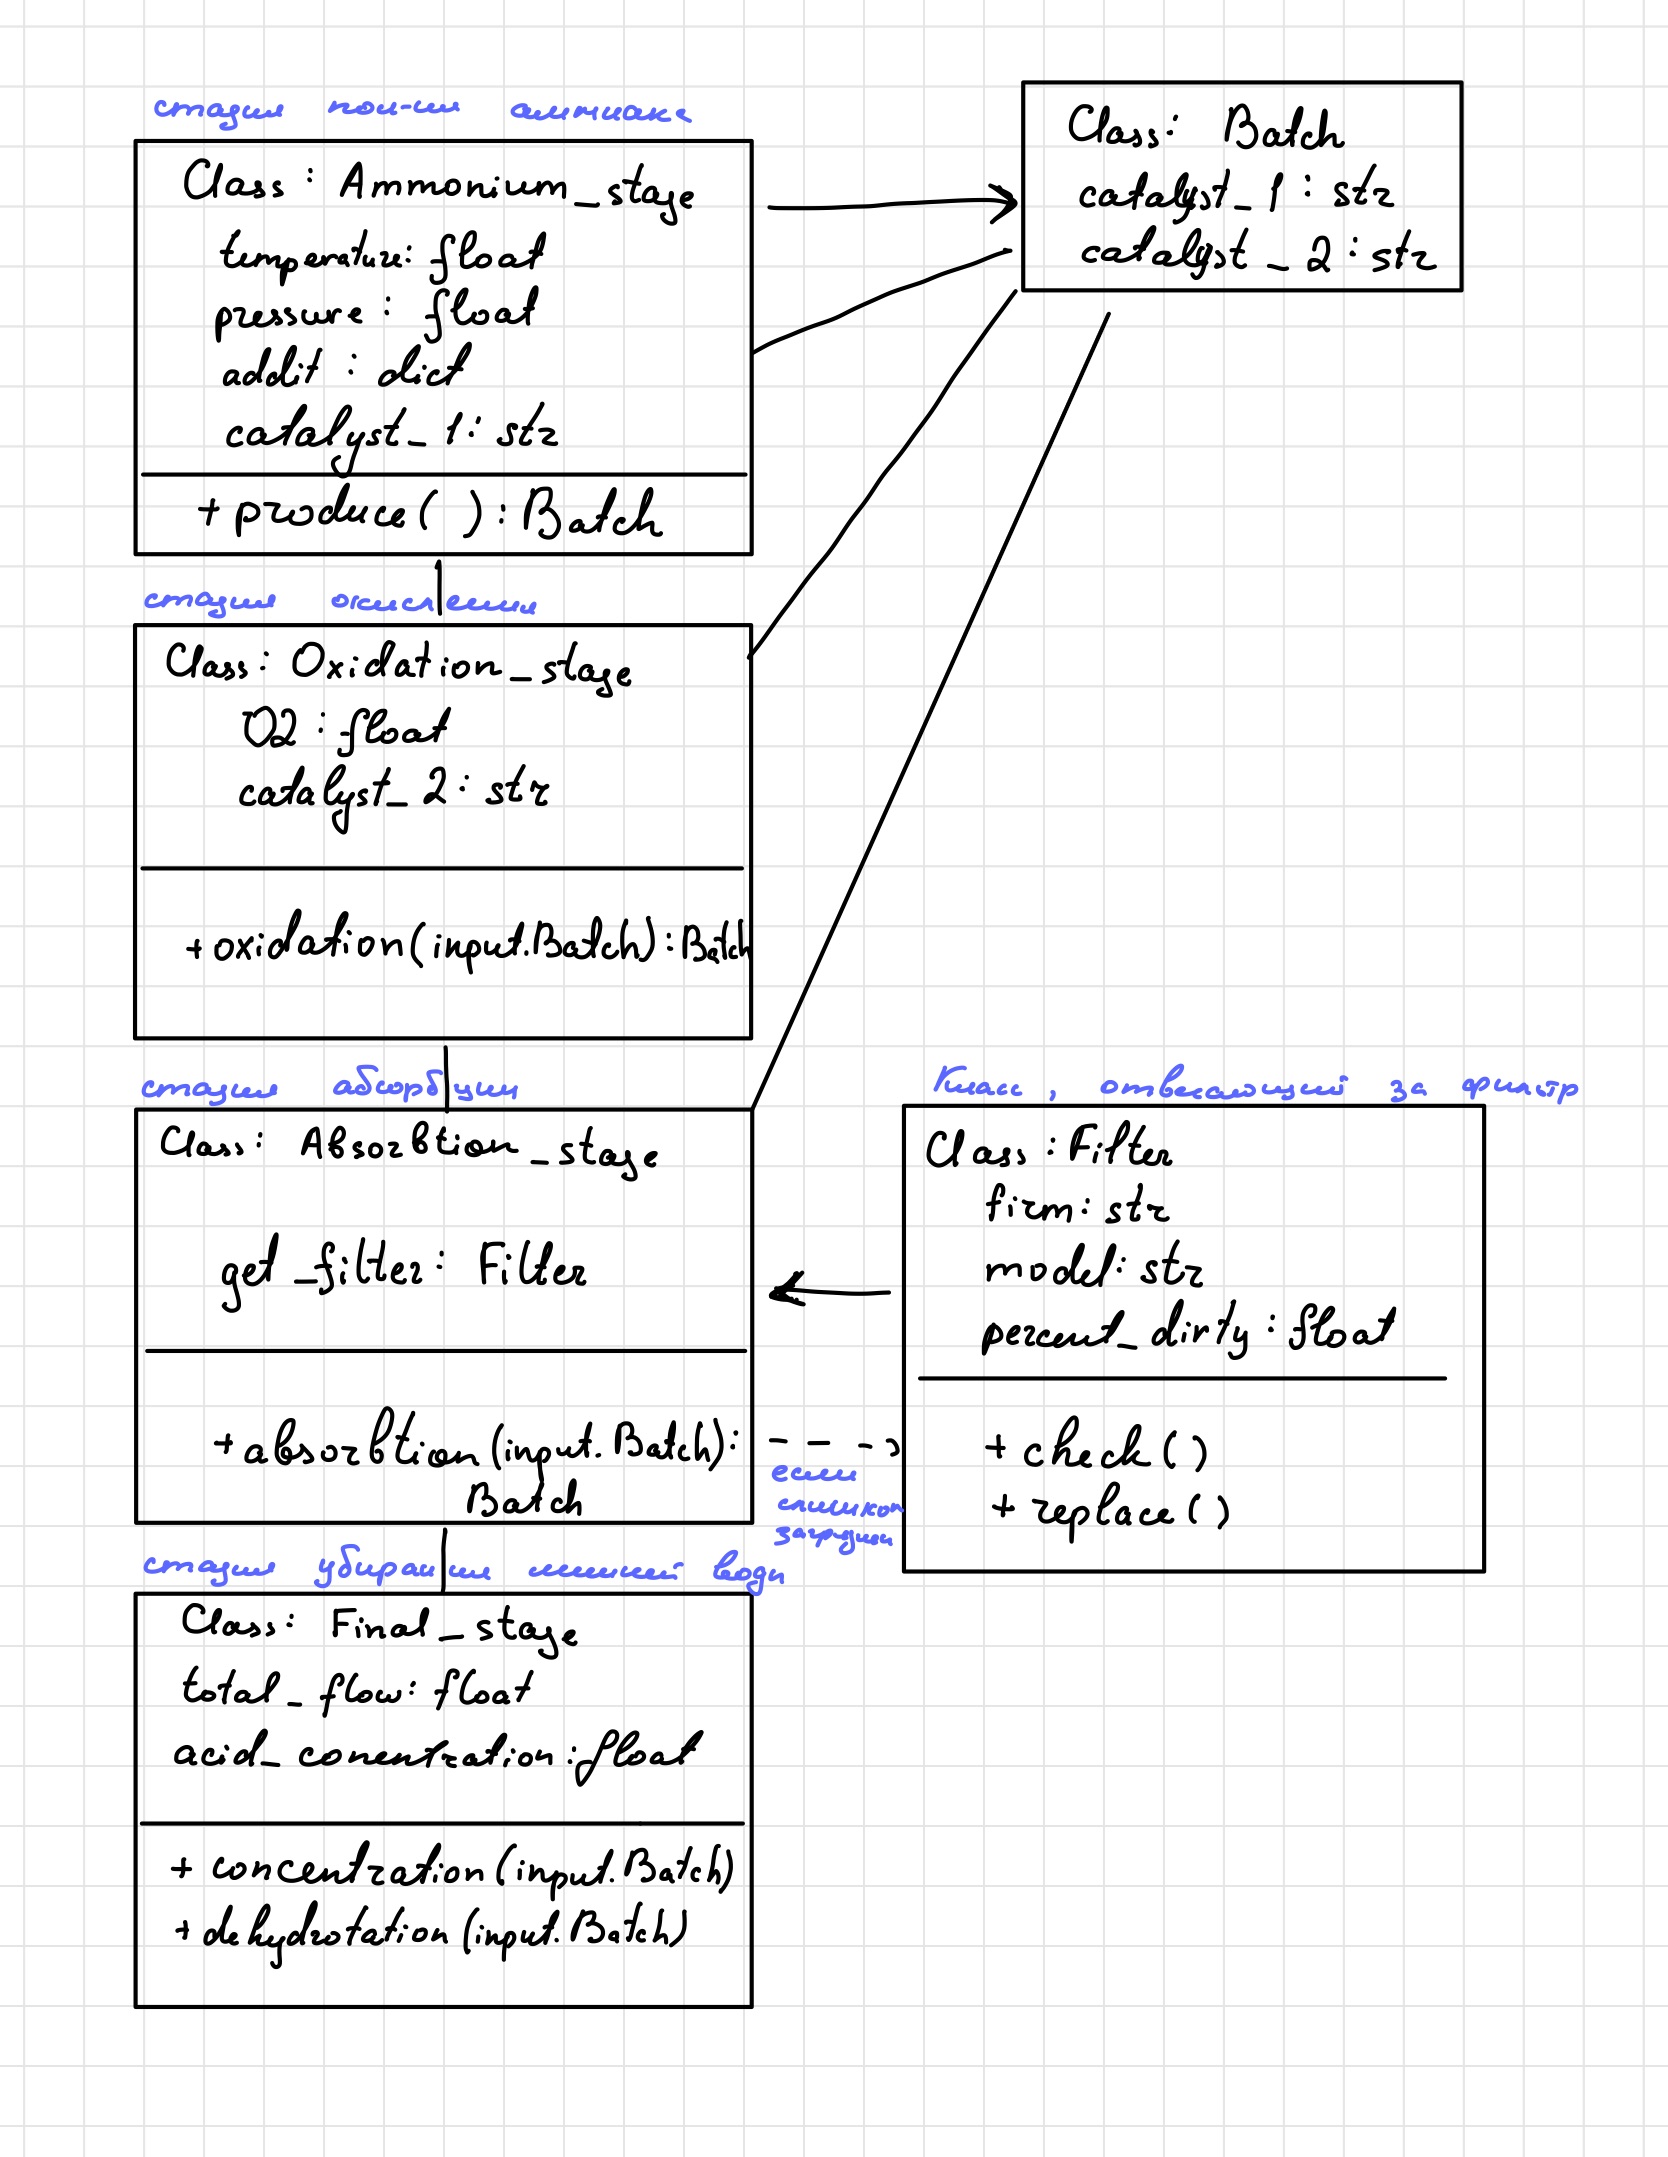 стадия пол-ия аммиака
Class: Ammonium_stage
temperature: float
pressure: float
addit: dict
catalyst_1: str
+ produce( ): Batch
Class: Batch
catalyst_1: str
catalyst_2: str
стадия окисления
Class: Oxidation_stage
O2: float
catalyst_2: str
+ oxidation(input.Batch): Batch
стадия абсорбции
Class: Absorbtion_stage
get_filter: Filter
+ absorbtion(input.Batch):
Batch
Класс, отвечающий за фильтр
Class: Filter
firm: str
model: str
percent_dirty: float
+ check()
+ replace()
если
слишком
загрязнен
стадия убирания лишней воды
Class: Final_stage
total_flow: float
acid_conentration: float
+ concentration(input.Batch)
+ dehydrotation(input.Batch)